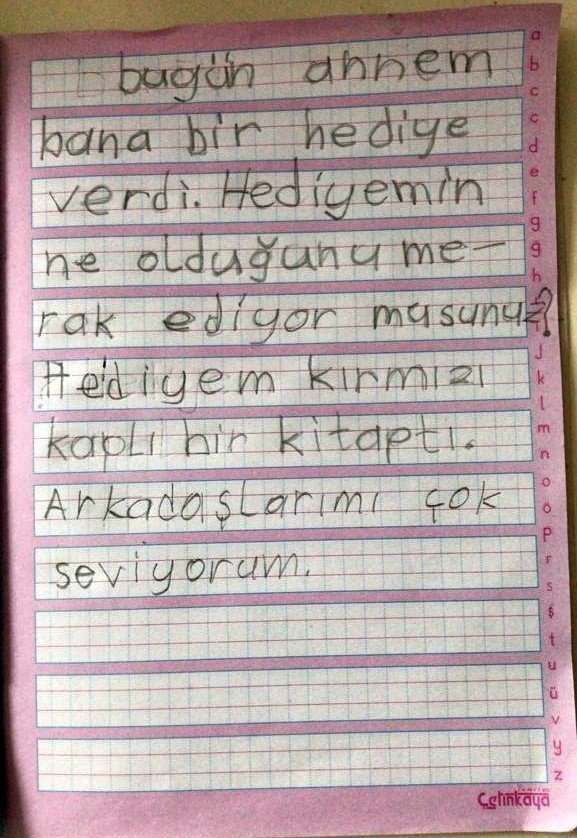 bugün annem
bana bir hediye
verdi. Hediyemin
ne olduğunu me-
rak ediyor musunuz?
Hediyem kırmızı
kaplı bir kitaptı.
Arkadaşlarımı çok
seviyorum.
a
b
c
ç
d
e
f
g
ğ
h
j
k
l
m
n
o
ö
p
r
s
ş
t
u
ü
v
y
z
Çetinkaya